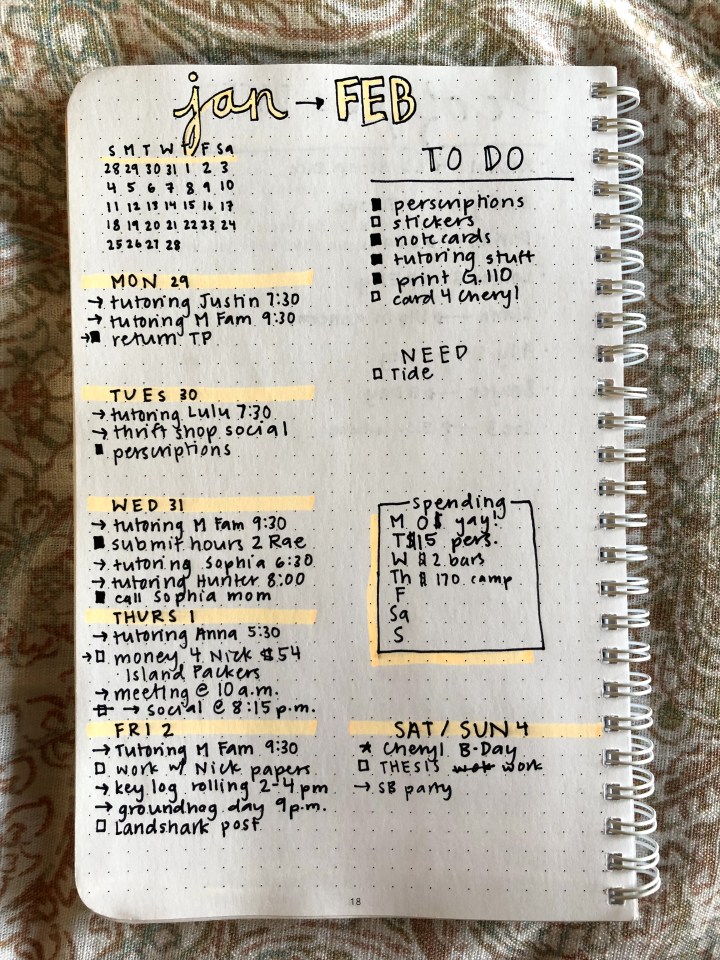 jan → FEB
S M T W T F Sa
28 29 30 31 1 2 3
4 5 6 7 8 9 10
11 12 13 14 15 16 17
18 19 20 21 22 23 24
25 26 27 28
MON 29
→ tutoring Justin 7:30
→ tutoring M Fam 9:30
→ ■ return TP
TUES 30
→ tutoring Lulu 7:30
→ thrift shop social
■ perscriptions
WED 31
→ tutoring M Fam 9:30
■ submit hours 2 Rae
→ tutoring Sophia 6:30
→ tutoring Hunter 8:00
■ call Sophia mom
THURS 1
→ tutoring Anna 5:30
→ □ money 4 Nick $54
Island Packers
→ meeting @ 10 a.m.
→ social @ 8:15 p.m.
FRI 2
→ Tutoring M Fam 9:30
□ work w/ Nick papers
→ key log rolling 2-4 pm
→ groundhog day 9 p.m.
□ Landshark post
TO DO
■ perscriptions
□ stickers
■ notecards
■ tutoring stuff
■ print G.110
□ card 4 Cheryl
NEED
□ Tide
spending
M 0$ yay!
T $15 pers.
W $2 bars
Th $170 camp
F
Sa
S
SAT/SUN 4
★ Cheryl B-Day
□ THESIS work
→ SB party
18